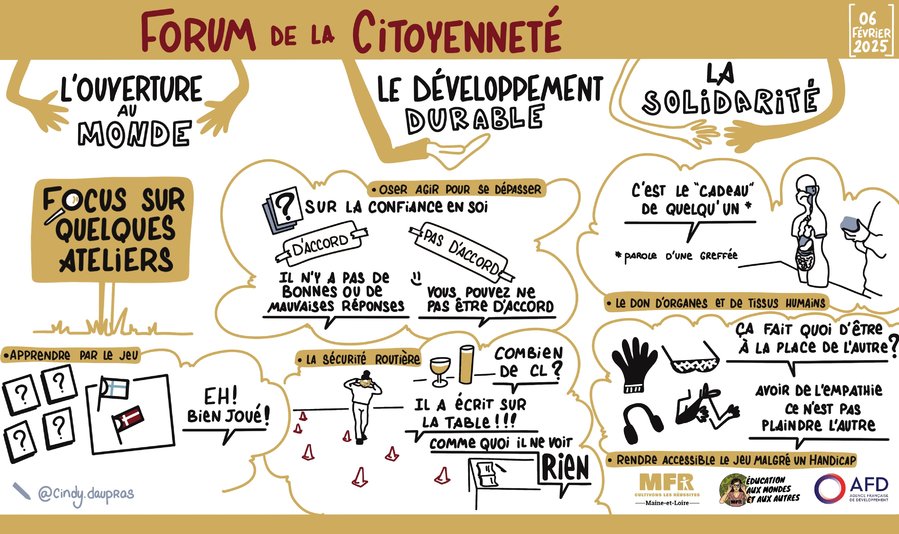 FORUM DE LA CITOYENNETÉ
[06
FÉVRIER
2025]
L'OUVERTURE
AU
MONDE
LE DÉVELOPPEMENT
DURABLE
LA
SOLIDARITÉ
FOCUS SUR
QUELQUES
ATELIERS
• OSER AGIR POUR SE DÉPASSER
?
SUR LA CONFIANCE EN SOI
D'ACCORD
PAS D'ACCORD
IL N'Y A PAS DE
BONNES OU DE
MAUVAISES RÉPONSES
VOUS POUVEZ NE
PAS ÊTRE D'ACCORD
C'EST LE "CADEAU"
DE QUELQU'UN *
* PAROLE D'UNE GREFFÉE
• LE DON D'ORGANES ET DE TISSUS HUMAINS
• APPRENDRE PAR LE JEU
?
?
?
?
EH!
BIEN JOUÉ!
• LA SÉCURITÉ ROUTIÈRE
COMBIEN
DE CL?
IL A ÉCRIT SUR
LA TABLE!!!
COMME QUOI IL NE VOIT
RIEN
ÇA FAIT QUOI D'ÊTRE
À LA PLACE DE L'AUTRE?
AVOIR DE L'EMPATHIE
CE N'EST PAS
PLAINDRE L'AUTRE
• RENDRE ACCESSIBLE LE JEU MALGRÉ UN HANDICAP
@Cindy.daupras
MFR
CULTIVONS LES RÉUSSITES
Maine-et-Loire
MFR
ÉDUCATION
AUX MONDES
ET AUX AUTRES
AFD
AGENCE FRANÇAISE
DE DÉVELOPPEMENT